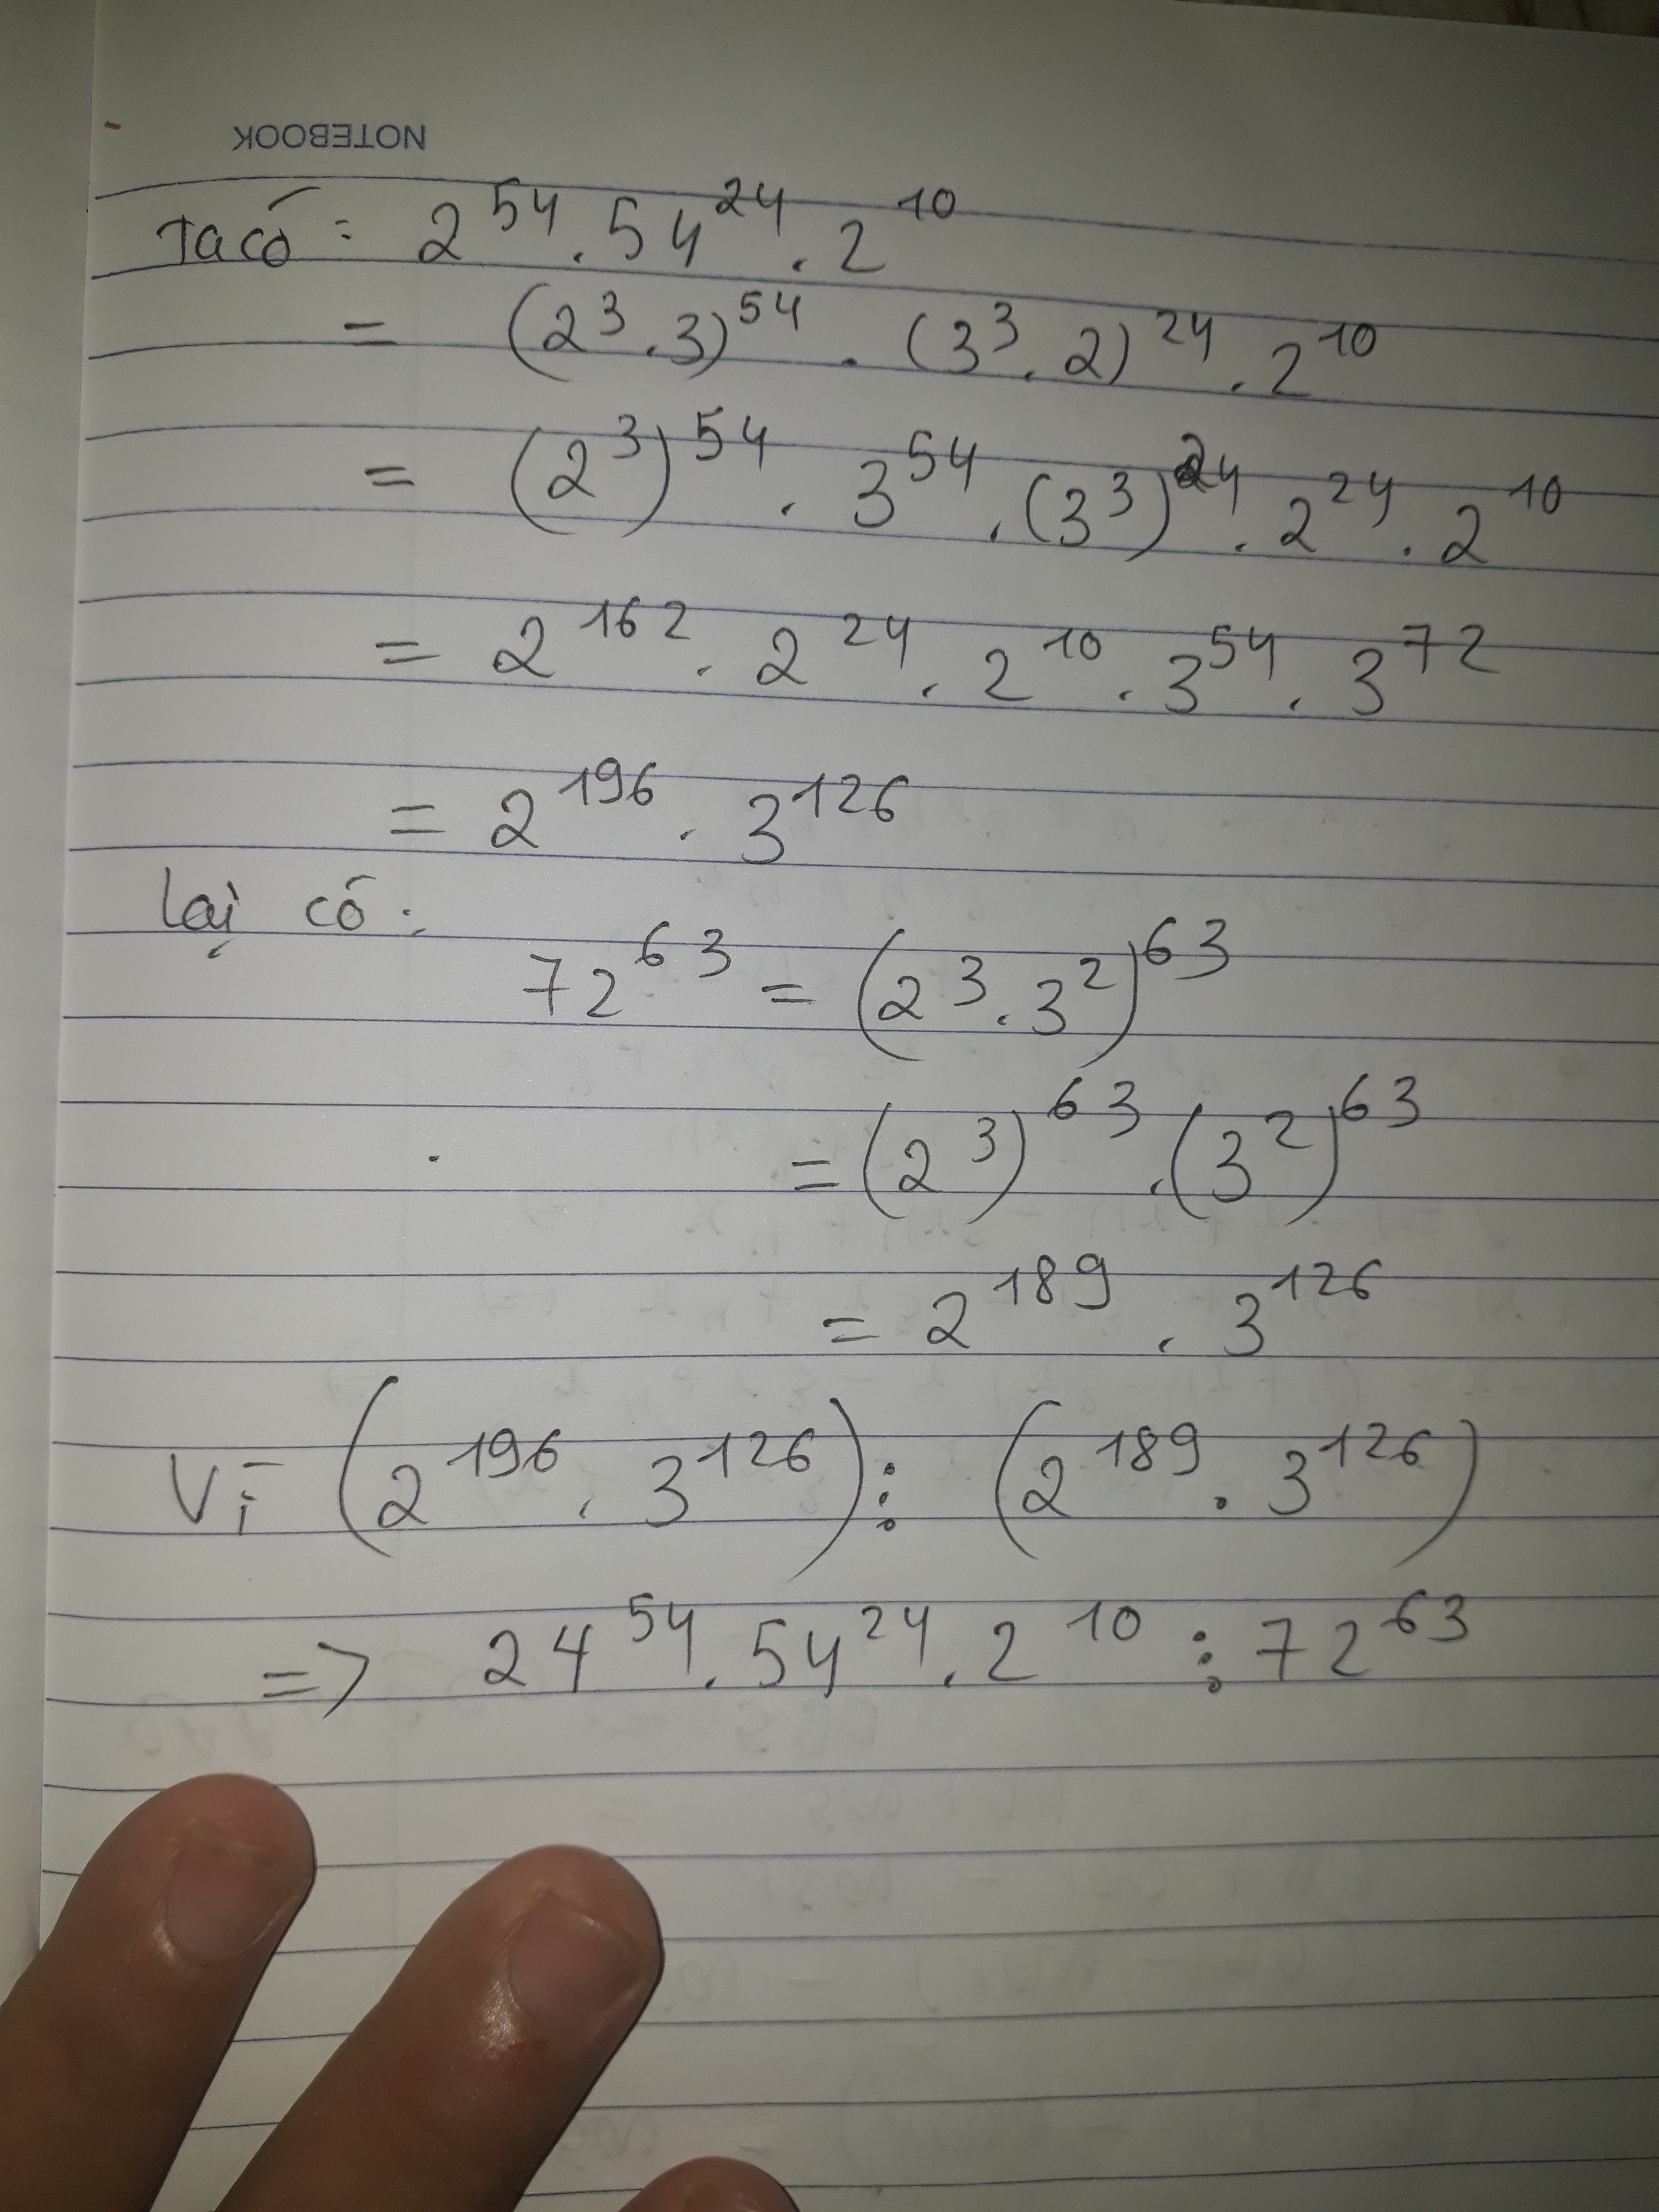 NOTEBOOK
Ta có: 2^54 . 54^24 . 2^10
= (2^3 . 3)^54 . (3^3 . 2)^24 . 2^10
= (2^3)^54 . 3^54 . (3^3)^24 . 2^24 . 2^10
= 2^162 . 2^24 . 2^10 . 3^54 . 3^72
= 2^196 . 3^126
Lại có:
72^63 = (2^3 . 3^2)^63
= (2^3)^63 . (3^2)^63
= 2^189 . 3^126
Vì (2^196 . 3^126) ⋮ (2^189 . 3^126)
=> 24^54 . 54^24 . 2^10 ⋮ 72^63